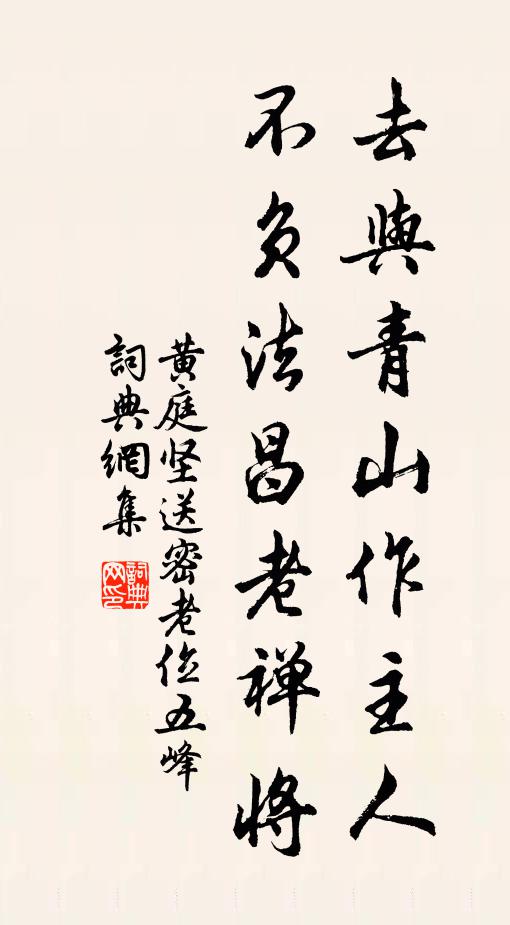 去與青山作主人
不負法昌老禅將
黄庭坚送密老住五峰
詞典網集
詞典网印